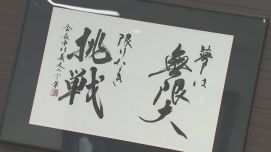 夢は
無限大
限りなき
挑戦